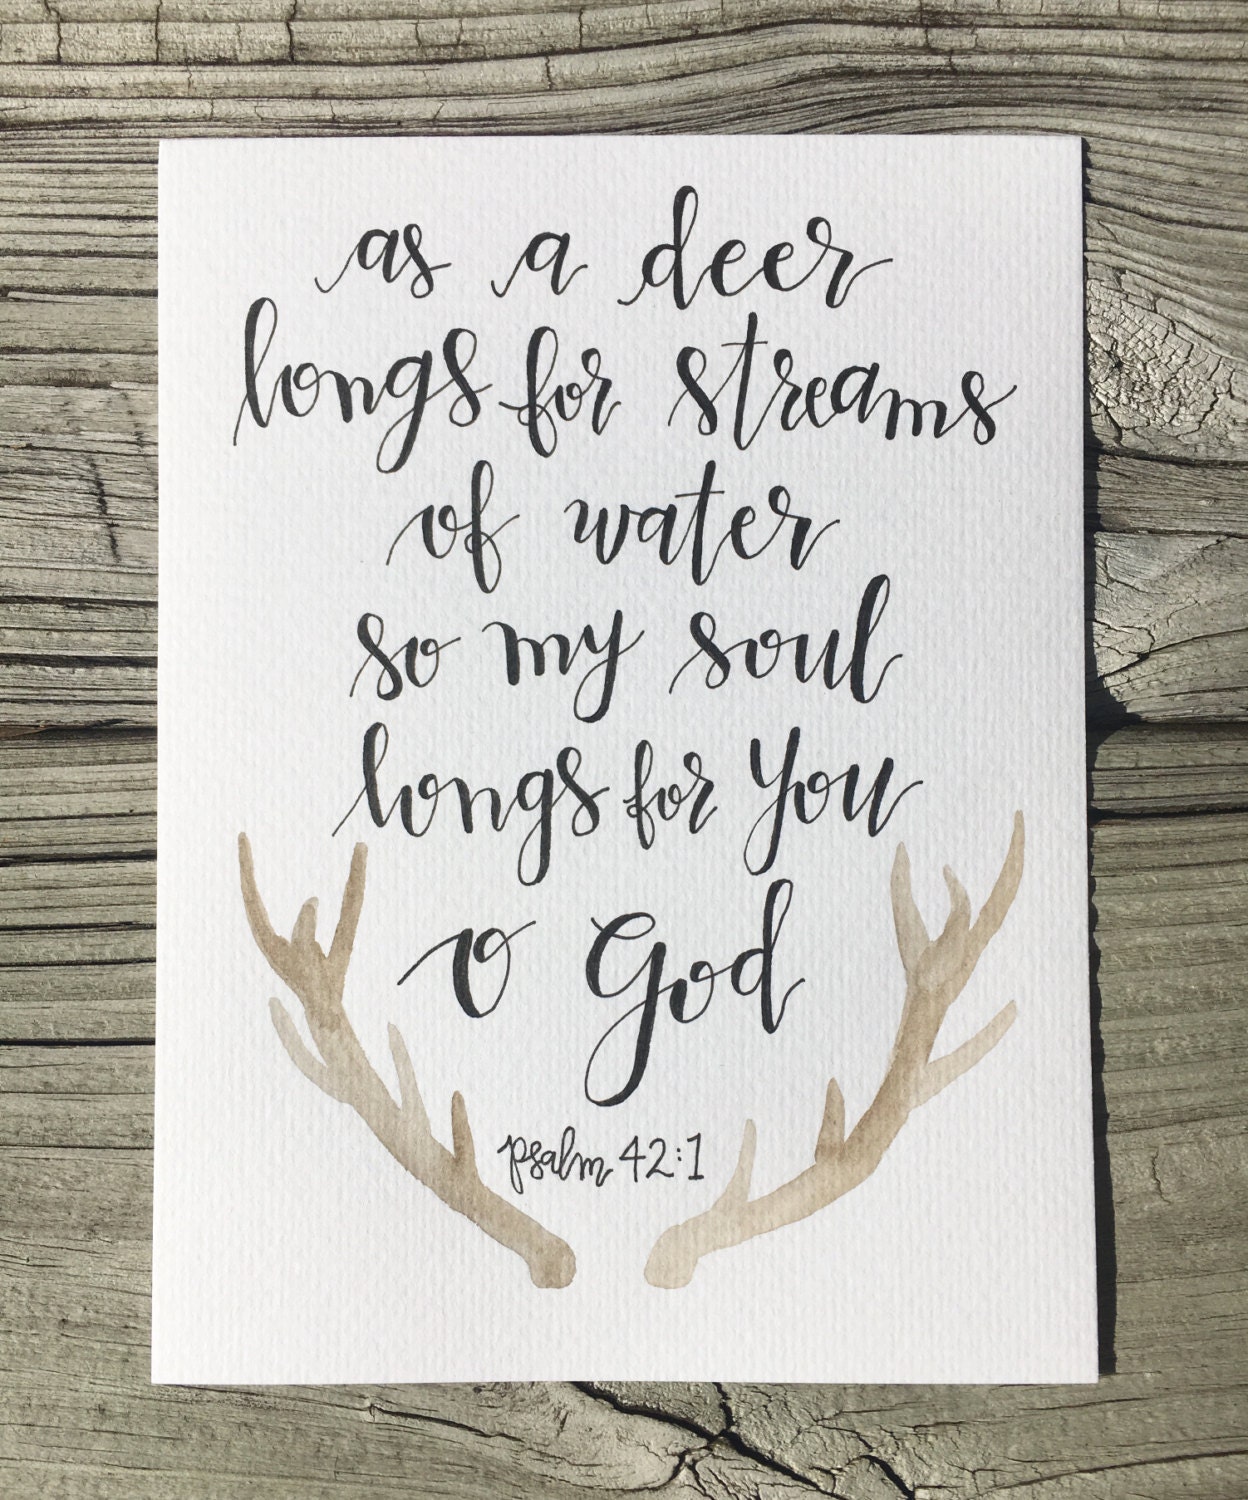 as a deer
longs for streams
of water
so my soul
longs for you
o God
psalm 42:1